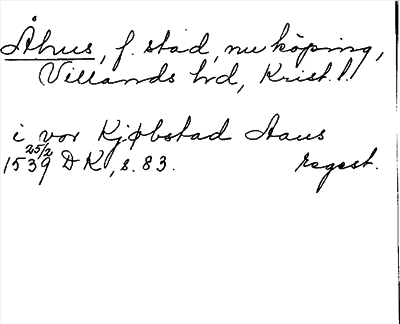 Åhus, f. stad, nu köping,
Villands hd, Krist. l.
i vor Kjøbstad Aaus
1539 25/2 DK, s. 83. regest.